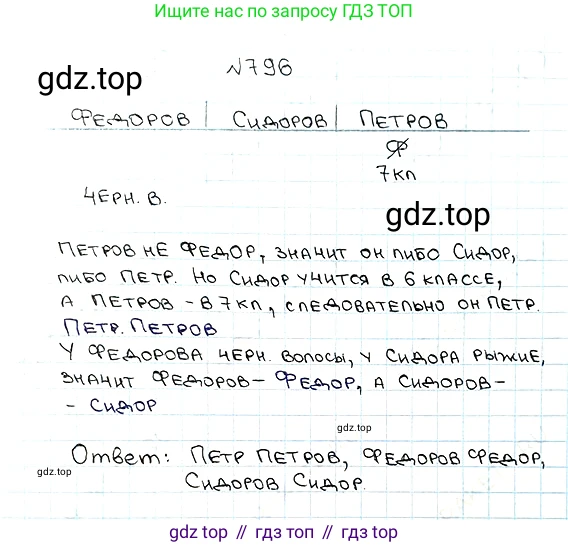 Ищите ответы по запросу ГДЗ ТОП
№796
gdz.top
ФЕДОРОВ | СИДОРОВ | ПЕТРОВ
Ф
7 КЛ
ЧЕРН. В.
gdz.top
ПЕТРОВ НЕ ФЕДОР, ЗНАЧИТ ОН ЛИБО СИДОР,
ЛИБО ПЕТР. НО СИДОР УЧИТСЯ В 6 КЛАССЕ,
А ПЕТРОВ - В 7 КЛ, СЛЕДОВАТЕЛЬНО ОН ПЕТР.
ПЕТР. ПЕТРОВ
У ФЕДОРОВА ЧЕРН. ВОЛОСЫ, У СИДОРА РЫЖИЕ,
ЗНАЧИТ ФЕДОРОВ - ФЕДОР, А СИДОРОВ -
- СИДОР
gdz.top
Ответ: ПЕТР ПЕТРОВ, ФЕДОРОВ ФЕДОР,
gdz.top
СИДОРОВ СИДОР.
gdz top // гдз топ // gdz top